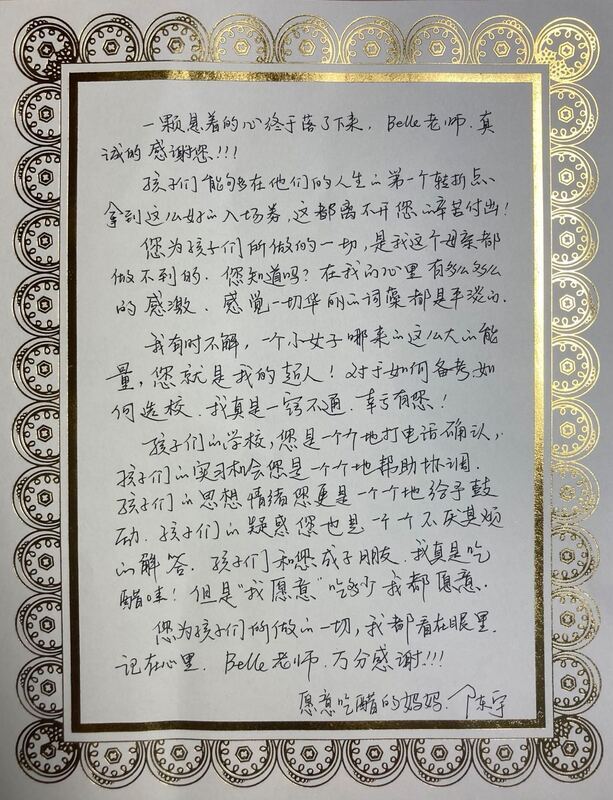 一颗悬着的心终于落了下来，Belle老师.真
诚的感谢您!!!
孩子们能够在他们的人生的第一个转折点、
拿到这么好的入场券，这都离不开您的辛苦付出！
您为孩子们所做的一切，是我这个母亲都
做不到的．您知道吗？在我的心里有多么多么
的感激．感觉一切华丽的词藻都是平淡的．
我有时不解，一个小女子哪来的这么大的能
量，您就是我的超人！对于如何备考．如
何选校．我真是一窍不通．幸亏有您！
孩子们的学校，您是一个个地打电话确认，
孩子们的实习机会您是一个个地帮助协调．
孩子们的思想情绪您更是一个个地给予鼓
励．孩子们的疑惑您也是一个个不厌其烦
的解答．孩子们和您成了朋友．我真是吃
醋哇！但是“我愿意”吃多少我都愿意．
您为孩子们所做的一切，我都看在眼里．
记在心里．Belle老师．万分感谢!!!
愿意吃醋的妈妈．陈宇